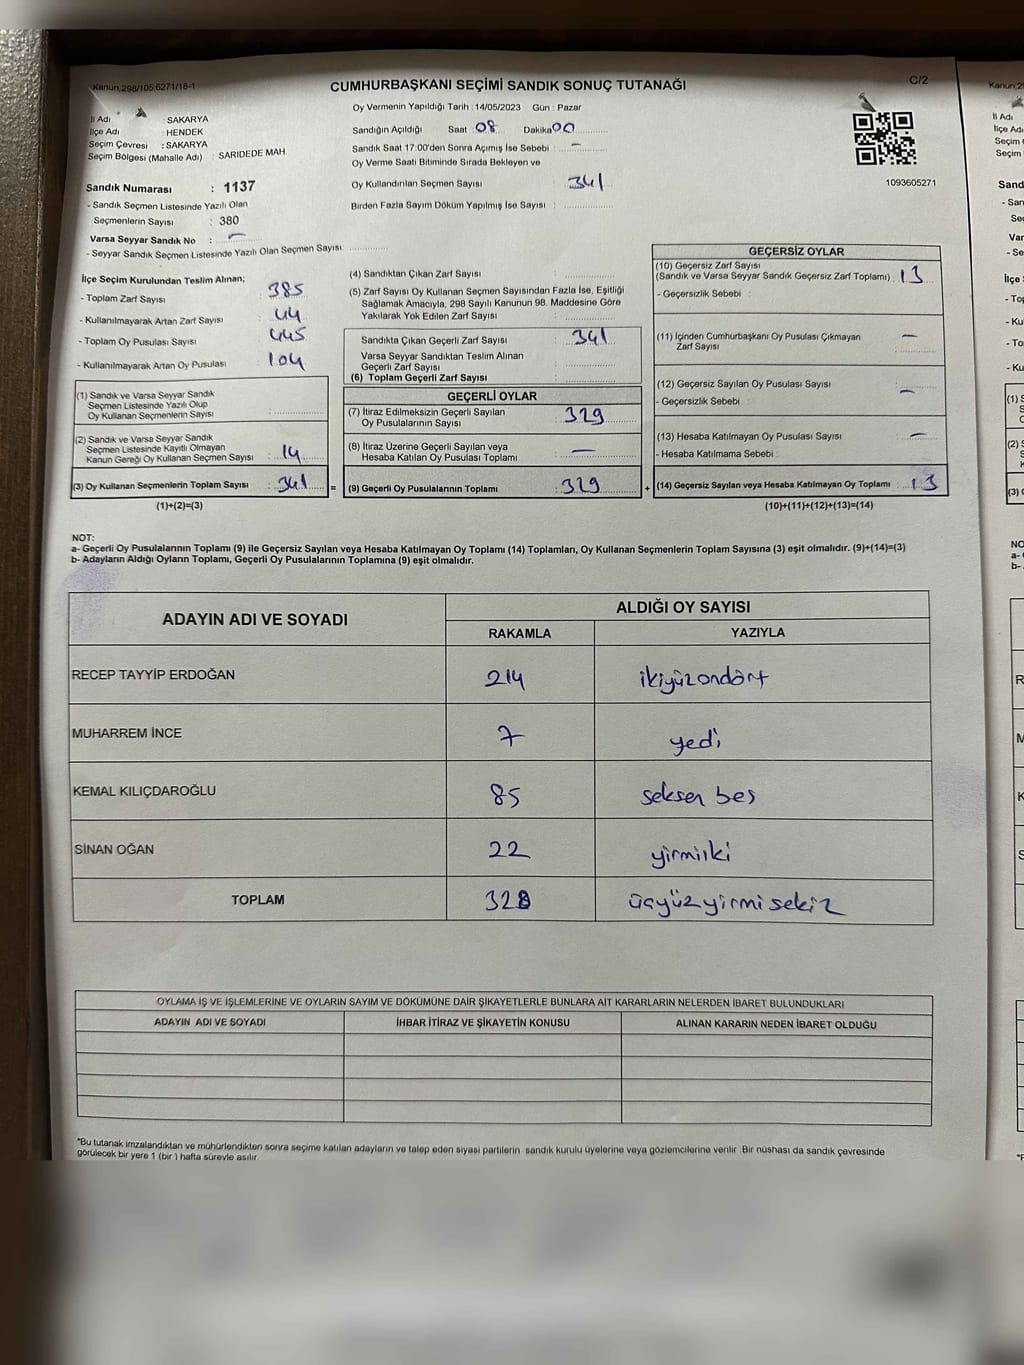 Kanun;298/105;6271/18-1
CUMHURBAŞKANI SEÇİMİ SANDIK SONUÇ TUTANAĞI
C/2
İl Adı : SAKARYA
İlçe Adı : HENDEK
Seçim Çevresi : SAKARYA
Seçim Bölgesi (Mahalle Adı) : SARIDEDE MAH
Sandık Numarası : 1137
- Sandık Seçmen Listesinde Yazılı Olan
Seçmenlerin Sayısı : 380
Varsa Seyyar Sandık No : –
- Seyyar Sandık Seçmen Listesinde Yazılı Olan Seçmen Sayısı:
Oy Vermenin Yapıldığı Tarih : 14/05/2023 Gün : Pazar
Sandığın Açıldığı Saat 08 Dakika 00
Sandık Saat 17:00'den Sonra Açımış İse Sebebi : –
Oy Verme Saati Bitiminde Sırada Bekleyen ve
Oy Kullandırılan Seçmen Sayısı : 341
Birden Fazla Sayım Döküm Yapılmış İse Sayısı :
1093605271
İlçe Seçim Kurulundan Teslim Alınan;
- Toplam Zarf Sayısı : 385
- Kullanılmayarak Artan Zarf Sayısı : 44
- Toplam Oy Pusulası Sayısı : 445
- Kullanılmayarak Artan Oy Pusulası : 104
(1) Sandık ve Varsa Seyyar Sandık
Seçmen Listesinde Yazılı Olup
Oy Kullanan Seçmenlerin Sayısı :
(2) Sandık ve Varsa Seyyar Sandık
Seçmen Listesinde Kayıtlı Olmayan
Kanun Gereği Oy Kullanan Seçmen Sayısı : 14
(3) Oy Kullanan Seçmenlerin Toplam Sayısı : 341
(1)+(2)=(3)
=
(4) Sandıktan Çıkan Zarf Sayısı :
(5) Zarf Sayısı Oy Kullanan Seçmen Sayısından Fazla İse, Eşitliği
Sağlamak Amacıyla, 298 Sayılı Kanunun 98. Maddesine Göre
Yakılarak Yok Edilen Zarf Sayısı :
Sandıkta Çıkan Geçerli Zarf Sayısı : 341
Varsa Seyyar Sandıktan Teslim Alınan
Geçerli Zarf Sayısı :
(6) Toplam Geçerli Zarf Sayısı :
GEÇERLİ OYLAR
(7) İtiraz Edilmeksizin Geçerli Sayılan
Oy Pusulalarının Sayısı : 329
(8) İtiraz Üzerine Geçerli Sayılan veya
Hesaba Katılan Oy Pusulası Toplamı : –
(9) Geçerli Oy Pusulalarının Toplamı : 329
+
GEÇERSİZ OYLAR
(10) Geçersiz Zarf Sayısı
(Sandık ve Varsa Seyyar Sandık Geçersiz Zarf Toplamı) : 13
- Geçersizlik Sebebi :
(11) İçinden Cumhurbaşkanı Oy Pusulası Çıkmayan : –
Zarf Sayısı
(12) Geçersiz Sayılan Oy Pusulası Sayısı : –
- Geçersizlik Sebebi :
(13) Hesaba Katılmayan Oy Pusulası Sayısı : –
- Hesaba Katılmama Sebebi :
(14) Geçersiz Sayılan veya Hesaba Katılmayan Oy Toplamı : 13
(10)+(11)+(12)+(13)=(14)
NOT:
a- Geçerli Oy Pusulalarının Toplamı (9) ile Geçersiz Sayılan veya Hesaba Katılmayan Oy Toplamı (14) Toplamları, Oy Kullanan Seçmenlerin Toplam Sayısına (3) eşit olmalıdır. (9)+(14)=(3)
b- Adayların Aldığı Oyların Toplamı, Geçerli Oy Pusulalarının Toplamına (9) eşit olmalıdır.
ADAYIN ADI VE SOYADI ALDIĞI OY SAYISI
RAKAMLA YAZIYLA
RECEP TAYYİP ERDOĞAN 214 ikiyüzondört
MUHARREM İNCE 7 yedi
KEMAL KILIÇDAROĞLU 85 seksen beş
SİNAN OĞAN 22 yirmiiki
TOPLAM 328 üçyüzyirmisekiz
OYLAMA İŞ VE İŞLEMLERİNE VE OYLARIN SAYIM VE DÖKÜMÜNE DAİR ŞİKAYETLERLE BUNLARA AİT KARARLARIN NELERDEN İBARET BULUNDUKLARI
ADAYIN ADI VE SOYADI İHBAR İTİRAZ VE ŞİKAYETİN KONUSU ALINAN KARARIN NEDEN İBARET OLDUĞU
*Bu tutanak imzalandıktan ve mühürlendikten sonra seçime katılan adayların ve talep eden siyasi partilerin sandık kurulu üyelerine veya gözlemcilerine verilir. Bir nüshası da sandık çevresinde
görülecek bir yere 1 (bir ) hafta süreyle asılır.